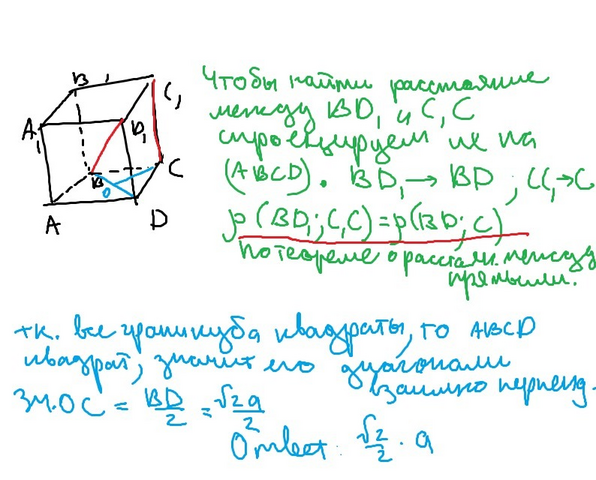 B₁
C₁
A₁
D₁
B
C
O
A
D
Чтобы найти расстояние
между BD₁ и C₁C
спроецируем их на
(ABCD). BD₁→BD; CC₁→C
ρ(BD₁;C₁C)=ρ(BD;C)
По теореме о расстоян. между
прямыми.
т.к. все грани куба квадраты, то ABCD
квадрат, значит его диагонали
взаимно перпенд.
Зн. OC = BD/2 = √2a/2
Ответ: √2/2 · a